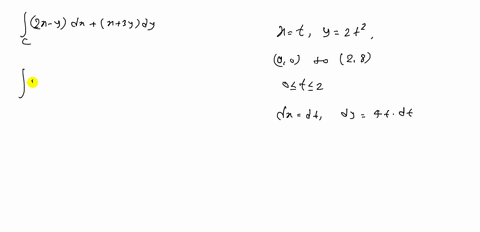 ∫_C (2x-y) dx + (x+3y) dy
∫
x=t, y=2t²,
(0,0) to (2,8)
0≤t≤2
dx=dt, dy=4t·dt